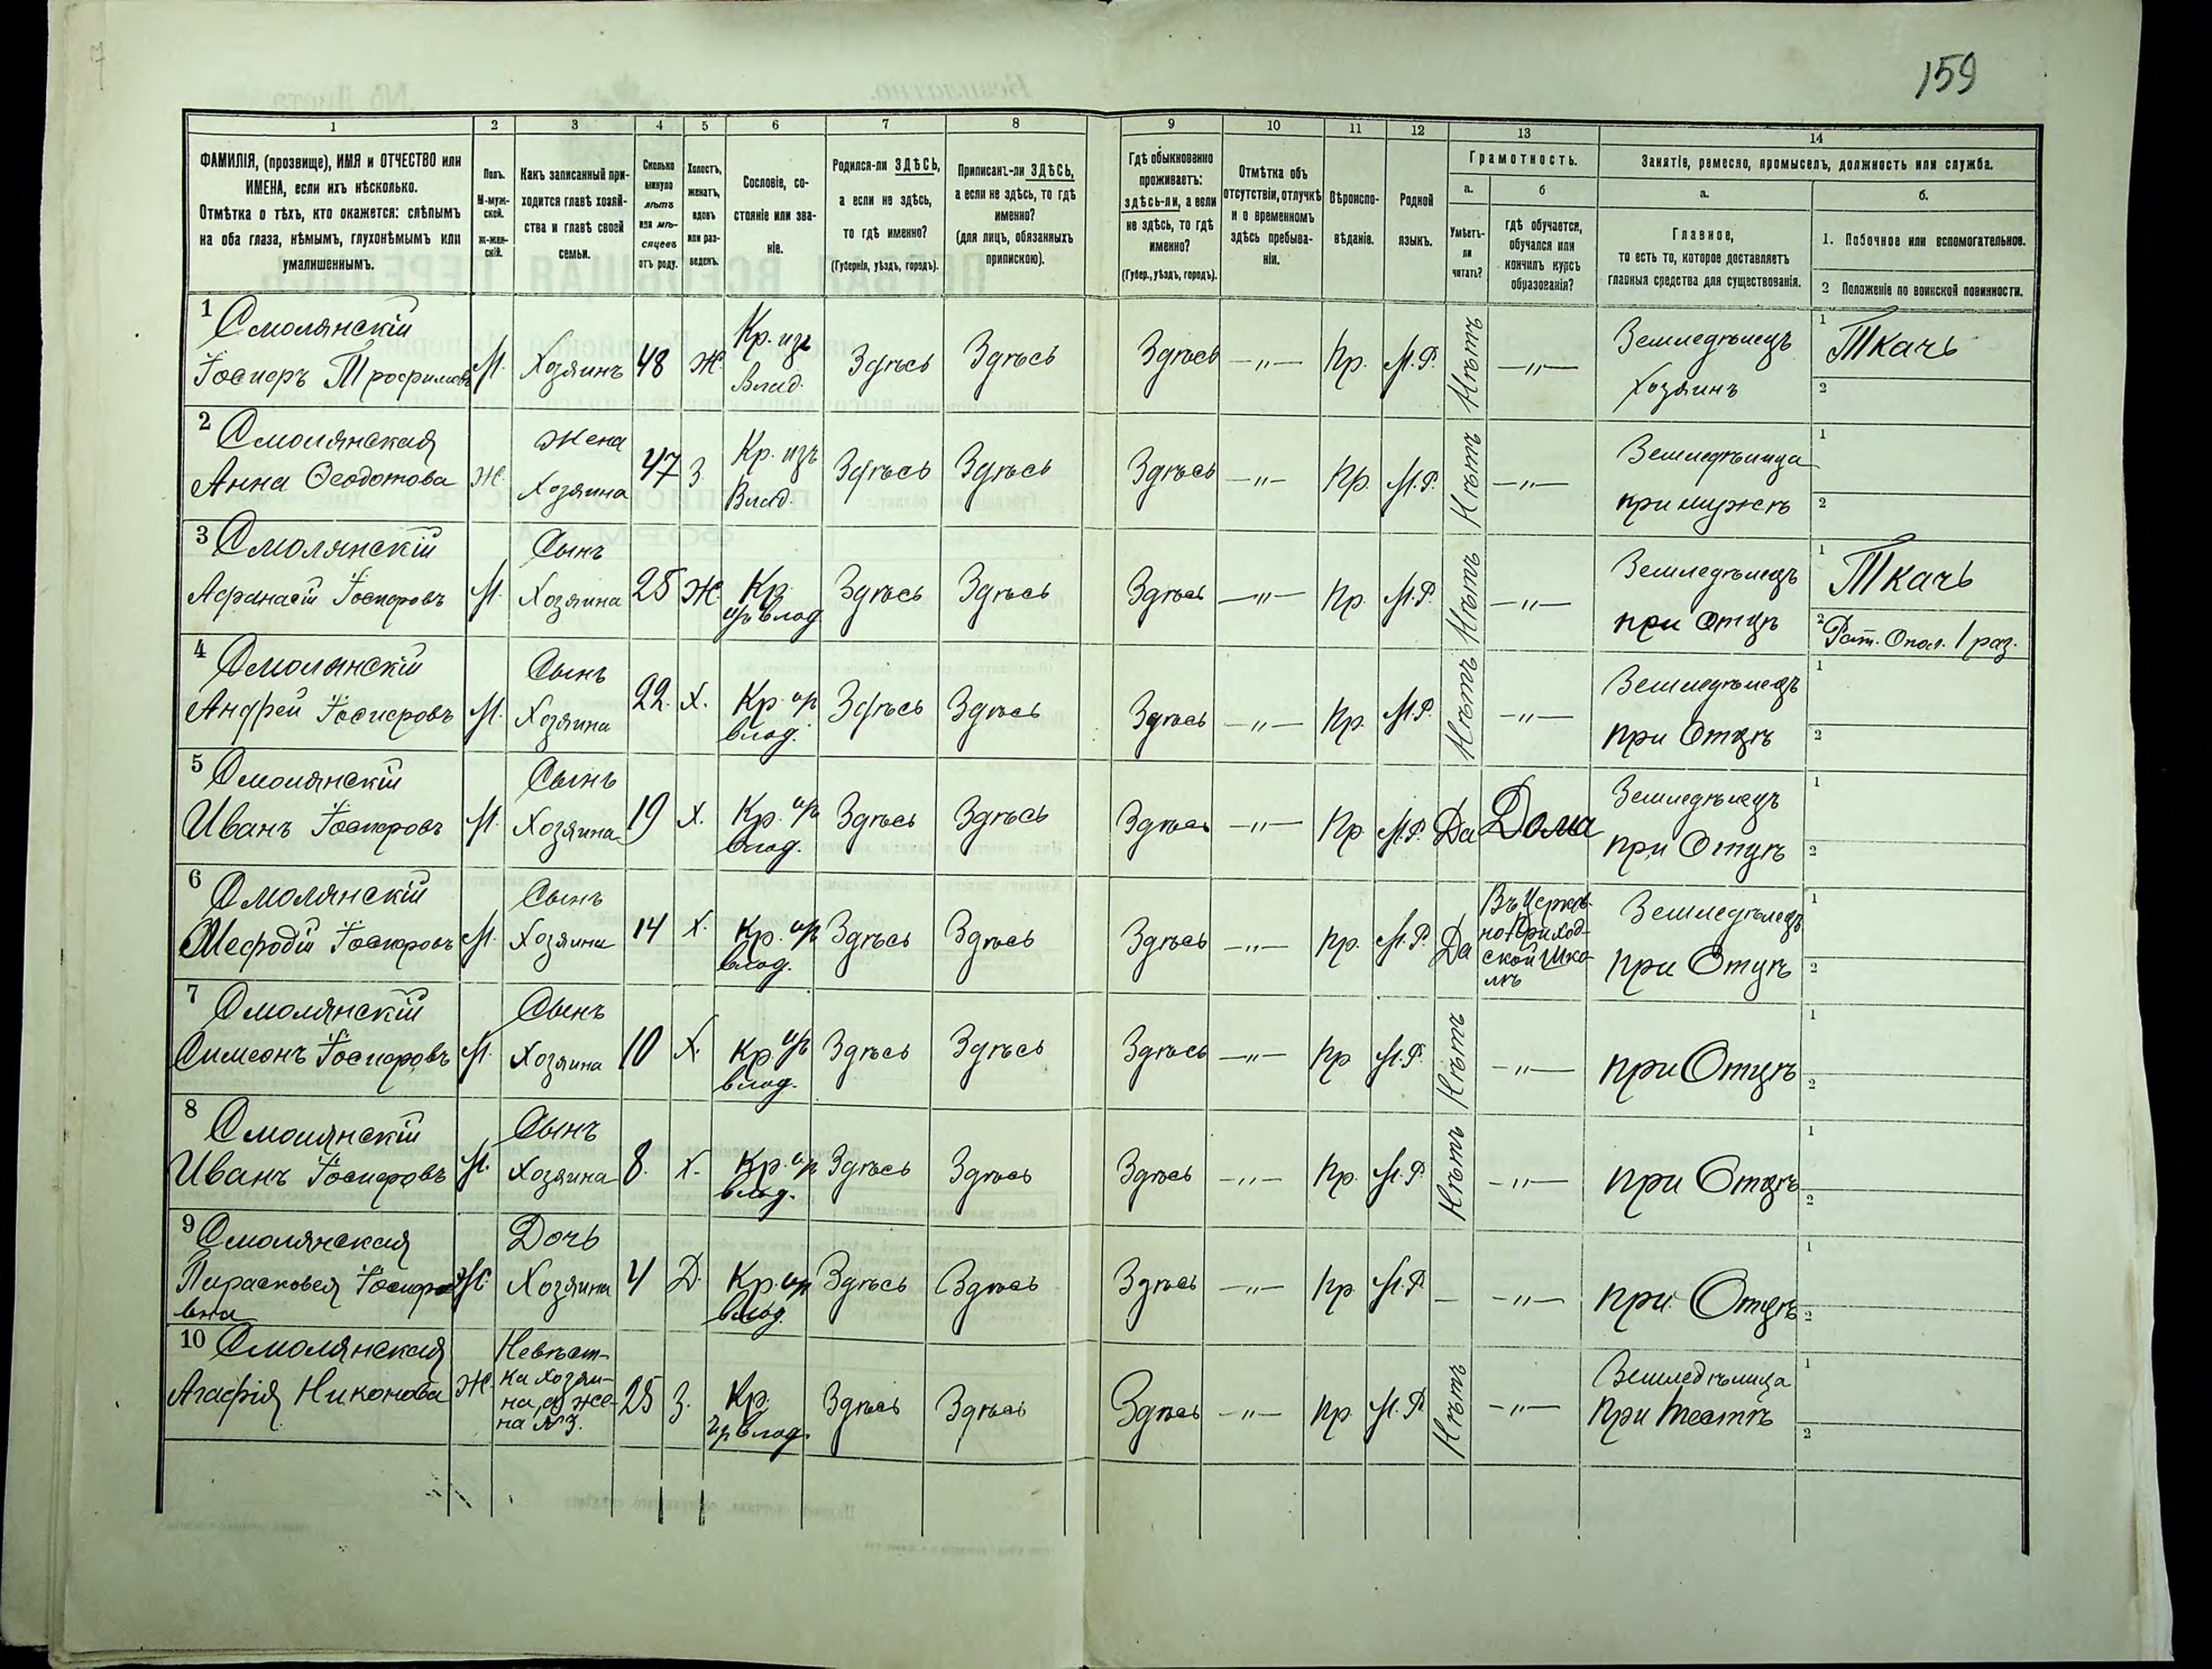 159
1 2 3 4 5 6 7 8 9 10 11 12 13 14
ФАМИЛІЯ, (прозвище), ИМЯ и ОТЧЕСТВО или
ИМЕНА, если ихъ нѣсколько.
Отмѣтка о тѣхъ, кто окажется: слѣпымъ
на оба глаза, нѣмымъ, глухонѣмымъ или
умалишеннымъ.
Полъ.
М-муж-
ской.
Ж-жен-
скій.
Какъ записанный при-
ходится главѣ хозяй-
ства и главѣ своей
семьи.
Сколько
минуло
лѣтъ
или мѣ-
сяцевъ
отъ роду.
Холостъ,
женатъ,
вдовъ
или раз-
веденъ.
Сословіе, со-
стояніе или зва-
ніе.
Родился-ли ЗДѢСЬ,
а если не здѣсь,
то гдѣ именно?
(Губернія, уѣздъ, городъ).
Приписанъ-ли ЗДѢСЬ,
а если не здѣсь, то гдѣ
именно?
(для лицъ, обязанныхъ
припискою).
Гдѣ обыкновенно
проживаетъ:
здѣсь-ли, а если
не здѣсь, то гдѣ
именно?
(Губер., уѣздъ, городъ).
Отмѣтка объ
отсутствіи, отлучкѣ
и о временномъ
здѣсь пребыва-
ніи.
Вѣроиспо-
вѣданіе.
Родной
языкъ.
Грамотность.
а.
Умѣетъ-
ли
читать?
б
гдѣ обучается,
обучался или
кончилъ курсъ
образованія?
Занятіе, ремесло, промыселъ, должность или служба.
а.
Главное,
то есть то, которое доставляетъ
главныя средства для существованія.
б.
1. Побочное или вспомогательное.
2 Положеніе по воинской повинности.
1 Смолянскій
Іосифъ Трофимовъ М. Хозяинъ 48 Ж. Кр. изъ Влад. Здѣсь Здѣсь Здѣсь —"— Пр. М.Р. Нѣтъ —"— Земледѣлецъ Хозяинъ 1 Ткачь
2
2 Смолянская
Анна Ѳеодотова Ж. Жена Хозяина 47 З. Кр. изъ Влад. Здѣсь Здѣсь Здѣсь —"— Пр. М.Р. Нѣтъ —"— Земледѣлица при мужѣ 1
2
3 Смолянскій
Афанасій Іосифовъ М. Сынъ Хозяина 25 Ж. Кр. изъ влад. Здѣсь Здѣсь Здѣсь —"— Пр. М.Р. Нѣтъ —"— Земледѣлецъ при Отцѣ 1 Ткачь
2 Рат. Опол. 1 раз.
4 Смолянскій
Андрей Іосифовъ М. Сынъ Хозяина 22. Х. Кр. из влад. Здѣсь Здѣсь Здѣсь —"— Пр. М.Р. Нѣтъ —"— Земледѣлецъ при Отцѣ 1
2
5 Смолянскій
Иванъ Іосифовъ М. Сынъ Хозяина 19 Х. Кр. из влад. Здѣсь Здѣсь Здѣсь —"— Пр М.Р. Да Дома Земледѣлецъ при Отцѣ 1
2
6 Смолянскій
Мефодій Іосифовъ М. Сынъ Хозяина 14 Х. Кр. из влад. Здѣсь Здѣсь Здѣсь —"— Пр. М.Р. Да Въ Церков-
но Приход-
ской Шко-
лѣ Земледѣлецъ при Отцѣ 1
2
7 Смолянскій
Симеонъ Іосифовъ М. Сынъ Хозяина 10 Х. Кр. изъ влад. Здѣсь Здѣсь Здѣсь —"— Пр М.Р. Нѣтъ —"— при Отцѣ 1
2
8 Смолянскій
Иванъ Іосифовъ М. Сынъ Хозяина 8. Х. Кр. из влад. Здѣсь Здѣсь Здѣсь —"— Пр. М.Р. Нѣтъ —"— при Отцѣ 1
2
9 Смолянская
Парасковея Іосифо
вна Ж. Дочь Хозяина 4 Д. Кр. из влад. Здѣсь Здѣсь Здѣсь —"— Пр. М.Р. — —"— при Отцѣ 1
2
10 Смолянская
Агафія Никонова Ж. Невѣст-
ка хозяи-
на, а же-
на №3. 25 З. Кр. из влад. Здѣсь Здѣсь Здѣсь —"— Пр. М.Р. Нѣтъ —"— Земледѣлица при тестѣ 1
2